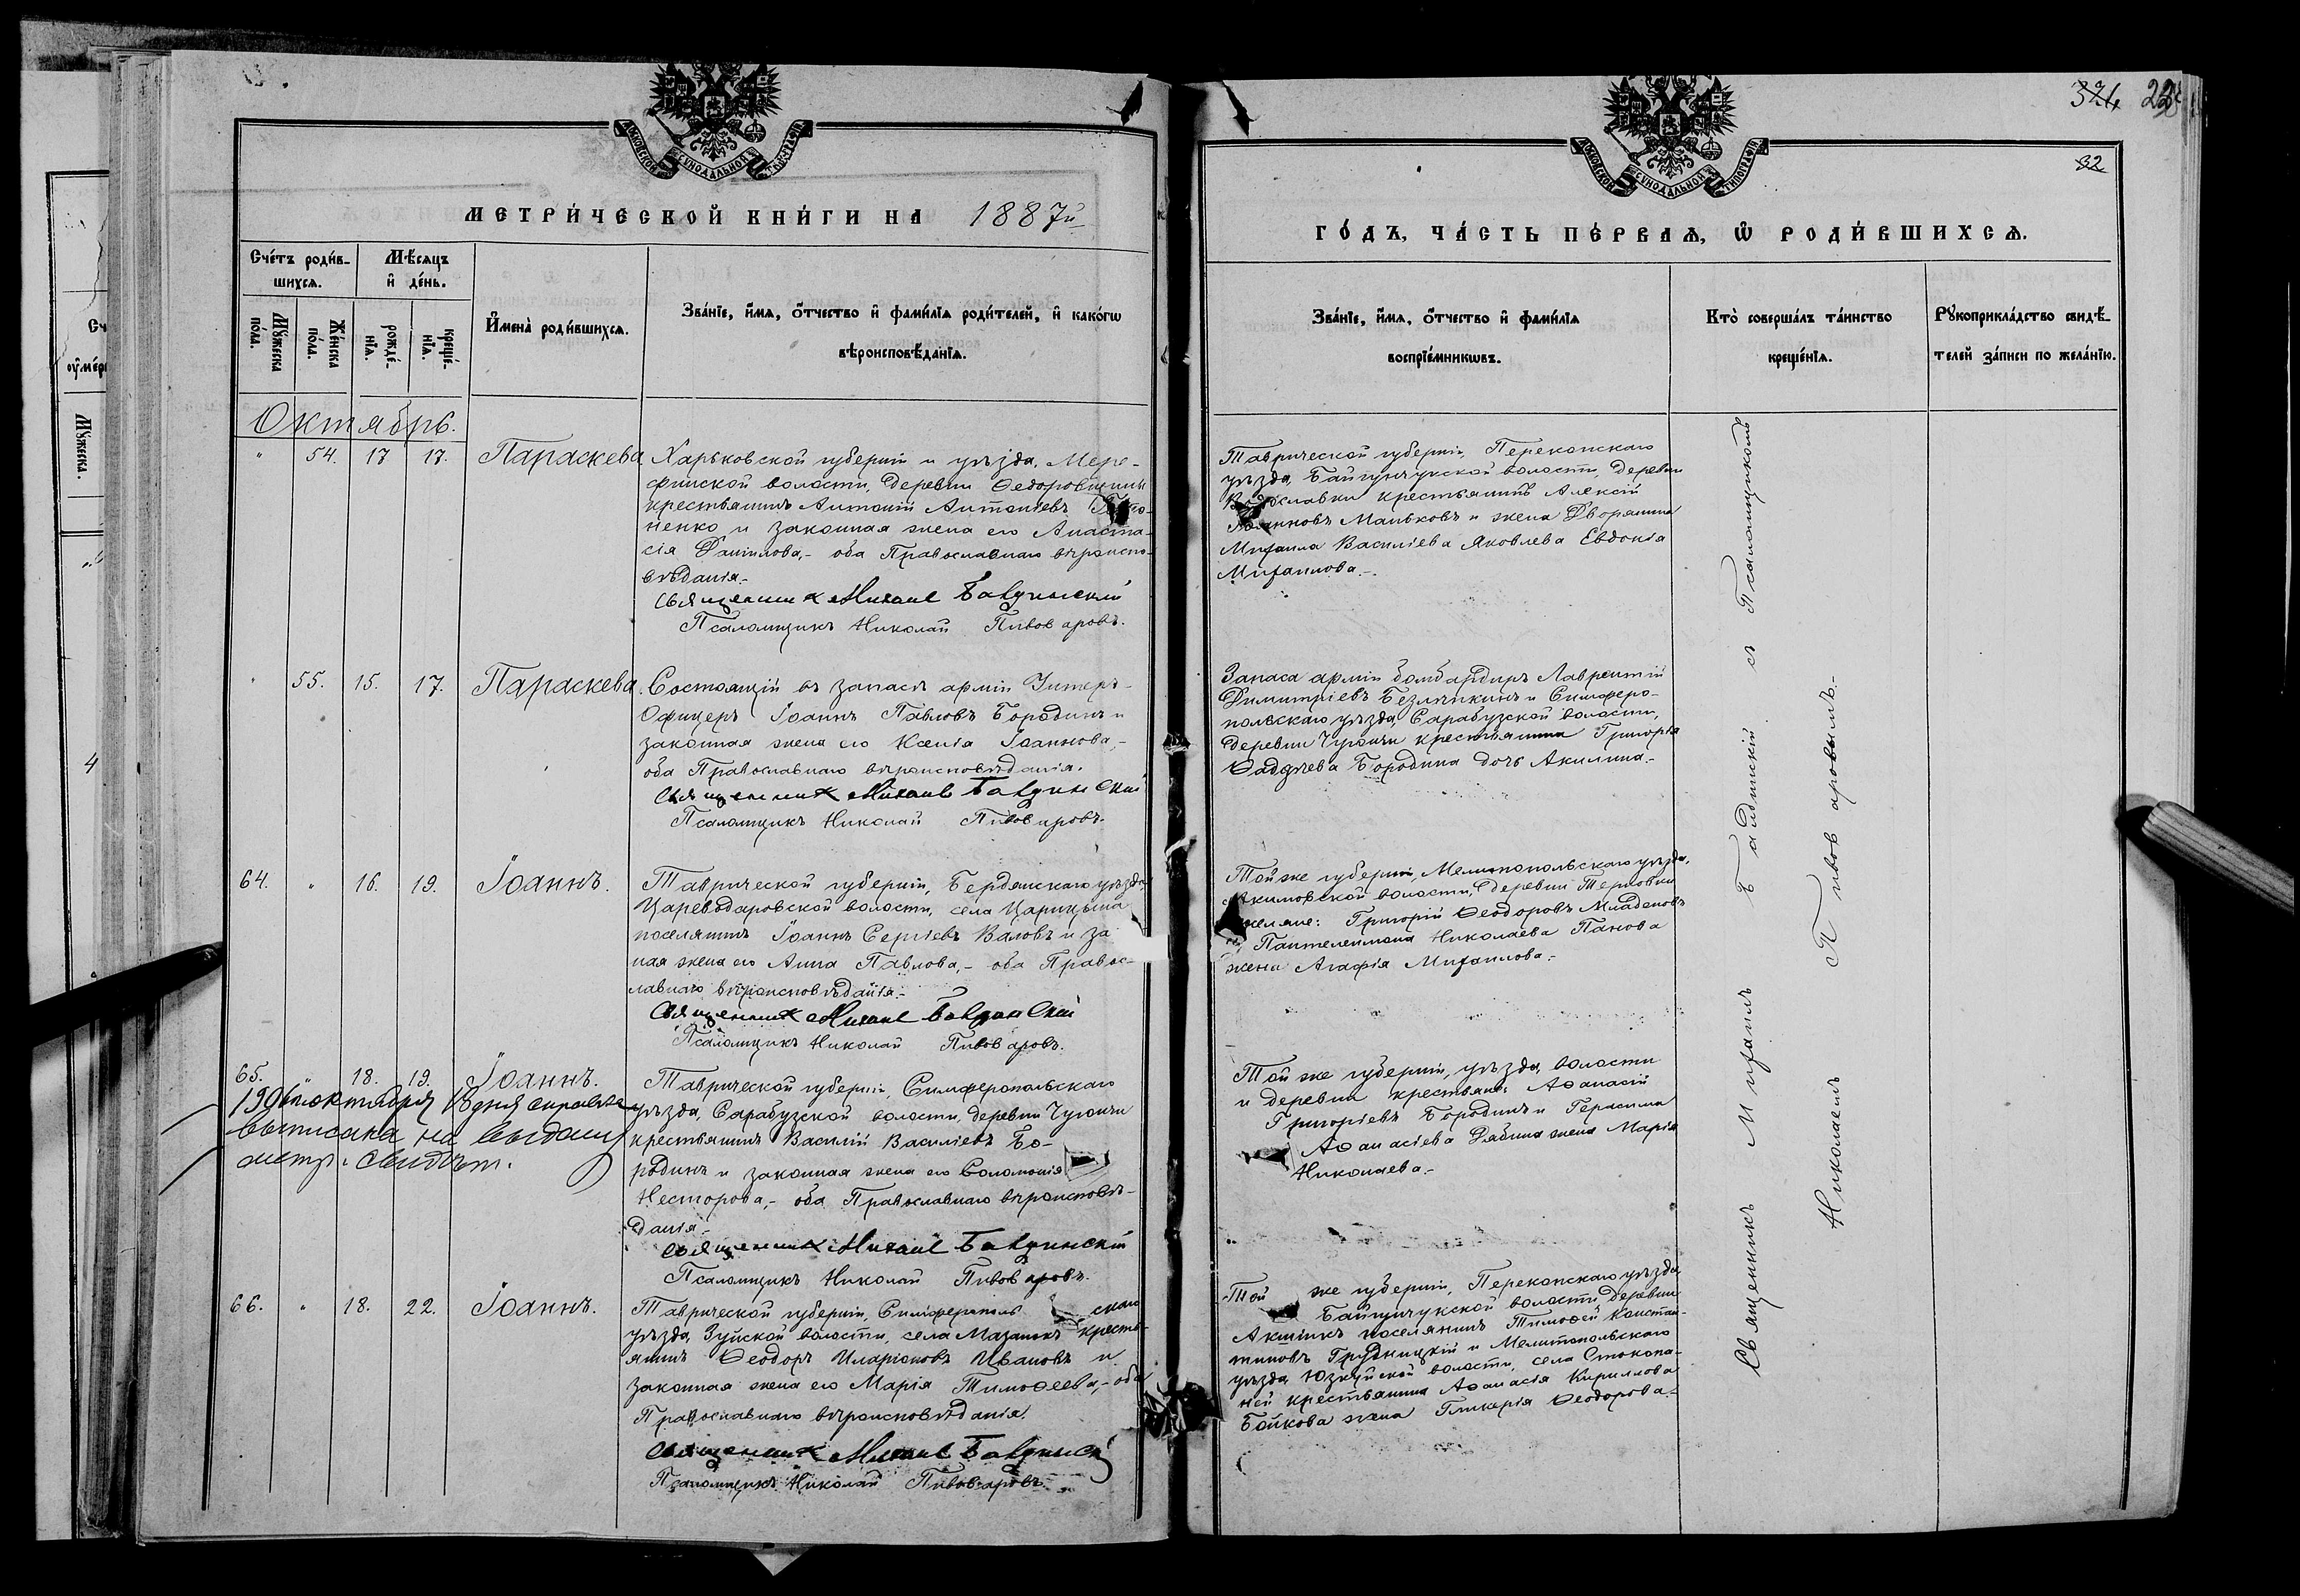 МОСКОВСКОЙ СѴНОДАЛЬНОЙ ТИПОГРАФІИ
МЕТРИ́ЧЕСКОЙ КНИ́ГИ НА 1887й
Сче́тъ роди́в-
шихсѧ.
Мѣ́сѧцъ
и҆ де́нь.
Мꙋ́жеска
по́ла.
Же́нска
по́ла.
рожде́-
нїѧ.
креще́-
нїѧ.
И҆мена̀ роди́вшихсѧ.
Зва́нїе, и҆́мѧ, ѻ҆́тчество и҆ фами́лїѧ роди́телей, и҆ како́гѡ
вѣроисповѣ́данїѧ.
Октябрь.
" 54. 17 17. Параскева
Харьковской губерніи и уѣзда, Мере-
финской волости, деревни Ѳедоровщины
крестьянинъ Антоній Антоніевъ
ненко и законная жена его Анаста-
сія Даніилова,- оба Православнаго вѣроиспо-
вѣданія.-
Священник Михаил Бавдинский
Псаломщикъ Николай Пивоваровъ.
" 55. 15. 17. Параскева.
Состоящій въ запасѣ арміи Унтеръ-
Офицеръ Іоаннъ Павловъ Бородинъ и
законная жена его Ксенія Іоаннова,-
оба Православнаго вѣроисповѣданія.
Священник Михаил Бавдинский
Псаломщикъ Николай Пивоваровъ.
64. " 16. 19. Іоаннъ.
Таврической губерніи, Бердянскаго уѣзда
Цареводаровской волости, села Царицына
поселянинъ Іоаннъ Сергіевъ Валовъ и за
ная жена его Анна Павлова,- оба Правос-
лавнаго вѣроисповѣданія.-
Священник Михаил Бавдинский
Псаломщикъ Николай Пивоваровъ.
65. " 18. 19. Іоаннъ.
октября 18 дня справка
выписана на выдачу
метр. свидѣт.
Таврической губерніи, Симферопольскаго
уѣзда, Сарабузской волости, деревни Чуюнчи
крестьянинъ Василій Василіевъ Бо-
родинъ и законная жена его Соломонія
Несторова,- оба Православнаго вѣроисповѣ-
данія.-
Священник Михаил Бавдинский
Псаломщикъ Николай Пивоваровъ.
66. " 18. 22. Іоаннъ.
Таврической губерніи, Симферополь скаго
уѣзда, Зуйской волости, села Мазанокъ кресть-
янинъ Ѳеодоръ Иларіоновъ Ивановъ и
законная жена его Марія Тимоѳеева,- оба
Православнаго вѣроисповѣданія.
Священник Михаил Бавдинский
Псаломщикъ Николай Пивоваровъ.
32
МОСКОВСКОЙ СѴНОДАЛЬНОЙ ТИПОГРАФІИ
ГО́ДЪ, ЧА́СТЬ ПЕ́РВАѦ, Ѡ҆ РОДИ́ВШИХСѦ.
Зва́нїе, и҆́мѧ, ѻ҆́тчество и҆ фами́лїѧ
воспрїе́мникѡвъ.
Кто̀ соверша́лъ та́инство
креще́нїѧ.
Рꙋкоприкла́дство свидѣ́-
телей за́писи по жела́нїю.
Таврической губерніи, Перекопскаго
уѣзда, Байгунчукской волости, деревни
крестьянинъ Алексій
Іоанновъ Маньковъ и жена Дворянина
Михаила Василіева Яковлева Евдокія
Михаилова.-
Запаса арміи бомбардиръ Лаврентій
Димитріевъ Безлѣпкинъ и Симферо-
польскаго уѣзда, Сарабузской волости,
деревни Чуюнчи крестьянина Григорія
Ѳаддѣева Бородина дочь Акилина.-
Той же губерніи, Мелитопольскаго уѣзда,
Акимовской волости, деревни Терновки
поселяне: Григорій Ѳеодоровъ Младеновъ
и Пантелеимона Николаева Панова
жена Агафія Михаилова.-
Той же губерніи, уѣзда, волости
и деревни крестьяне: Аѳанасій
Григоріевъ Бородинъ и Герасима
Аѳанасіева Рябина жена Марія
Николаева.-
Той же губерніи, Перекопскаго уѣзда,
Байгунчукской волости, деревни
поселянинъ Тимоѳей Констан-
тиновъ Грудницкій и Мелитопольскаго
уѣзда, Юзкуйской волости, села Стокопа-
ней крестьянина Аѳанасія Кириллова
Бойкова жена Гликерія Ѳеодорова.-
Священникъ Михаилъ Бавдинскій съ Псаломщикомъ
Николаемъ Пивоваровымъ.-